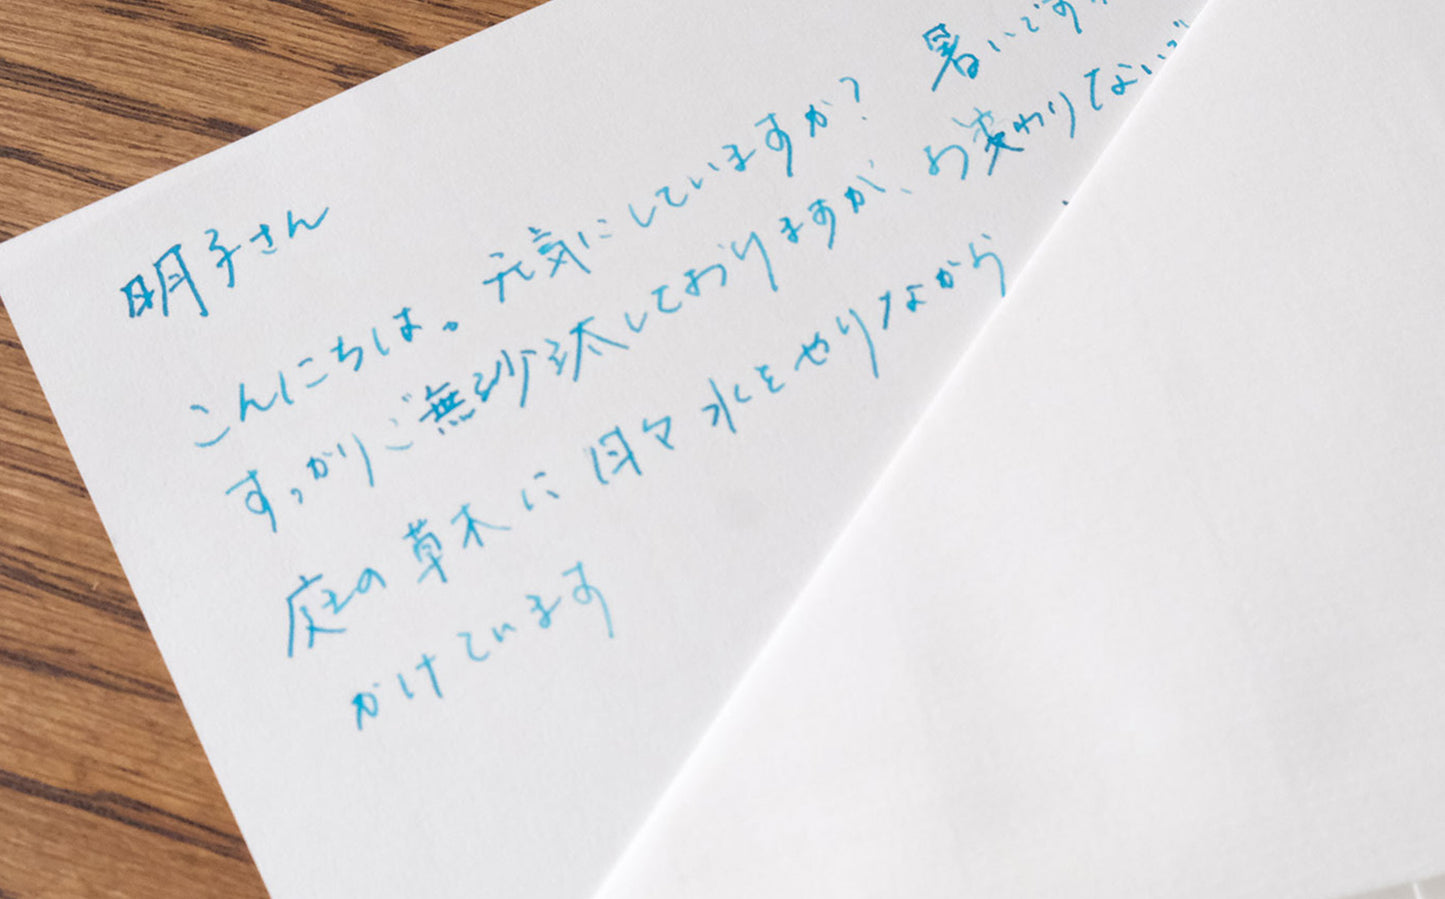 明子さん
こんにちは。元気にしていますか? 暑いです
すっかりご無沙汰しておりますが、お変わりない
庭の草木に日々水をやりながら
かけています